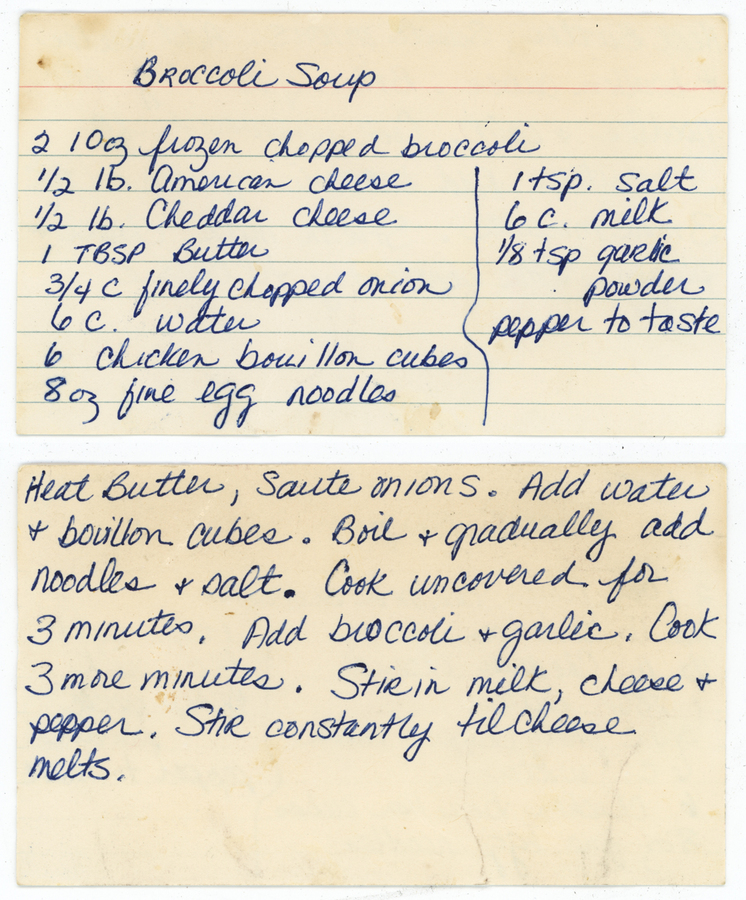 Broccoli Soup
2 10oz frozen chopped broccoli
1/2 lb. American cheese
1/2 lb. Cheddar cheese
1 TBSP Butter
3/4 c finely chopped onion
6 c. water
6 chicken bouillon cubes
8 oz fine egg noodles
1 tsp. salt
6 c. milk
1/8 tsp garlic
powder
pepper to taste
Heat Butter, Saute onions. Add water
+ bouillon cubes. Boil + gradually add
noodles + salt. Cook uncovered for
3 minutes. Add broccoli + garlic. Cook
3 more minutes. Stir in milk, cheese +
pepper. Stir constantly til cheese
melts.